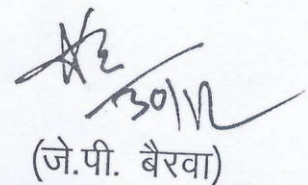 30/12
(जे.पी. बैरवा)